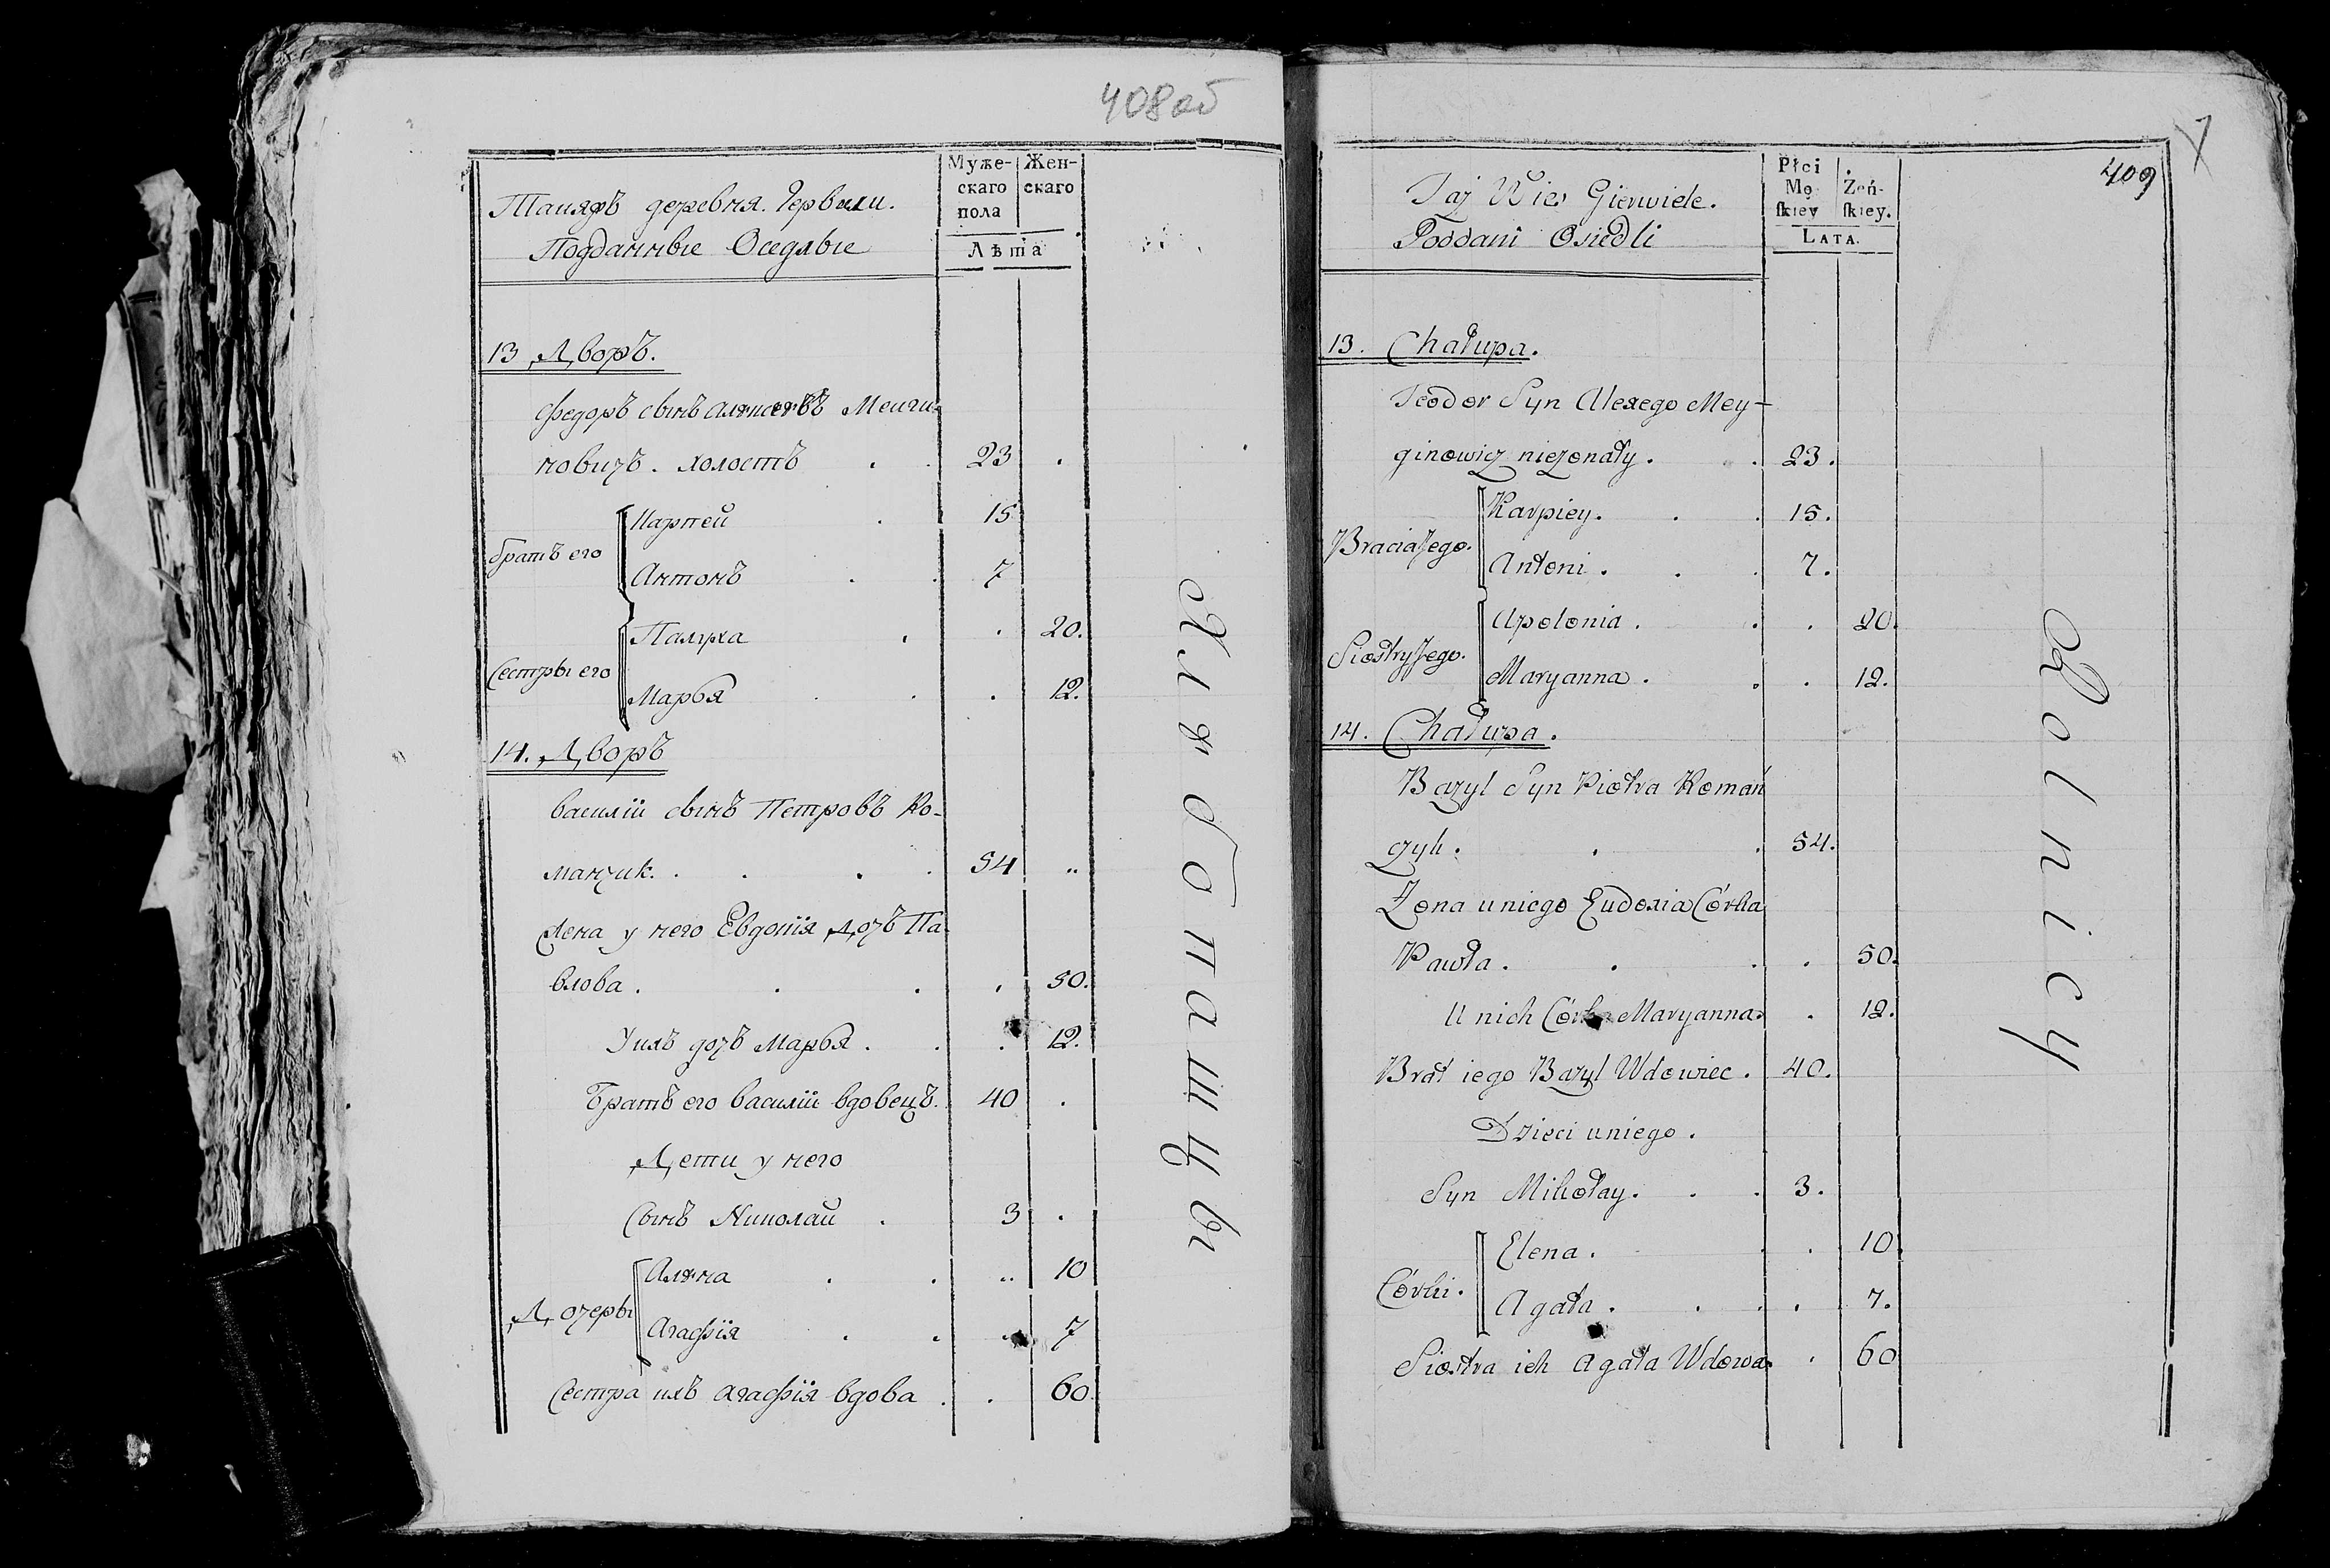 408 об
Таияжъ деревня. Гервели.
Подданные Оседлые
Муже-
скаго
пола
Жен-
скаго
Лѣта
13 Дворъ.
Федоръ сынъ Алексеевъ Меиги-
новичъ. холостъ . . 23 .
братъ его
Карпей . 15
Антонъ . . 7
Сестры его
Палуха . . 20.
Марья . . . 12.
14. Дворъ
Василiй сынъ Петровъ Ро-
манчик. . . . . 54 ..
Жена у него Евдокiя Дочъ Па-
влова . . . . 50.
У ихъ дочъ Марья . . . 12.
Братъ его Василiй вдовецъ. 40 .
Дети у него
Сынъ Николай . 3 .
Дочеры
Алена . . .. 10
Агафiя . . 7
Сестра ихъ Агафiя вдова . . 60.
Хлябопашцы
409
Taj Wieś Gierwiele.
Poddani Osiedli
Płci
Mę
ſkiey
Żeń-
ſkiey.
LATA.
13. Chałupa.
Teodor Syn Alexego Mey-
ginowicz nieżonaty. . 23.
Bracia Jego.
Karpiey. . . 15.
Antoni . . . 7.
Siostry Jego.
Apolonia . . . 20.
Maryanna . . . 12.
14. Chałupa.
Bazyl Syn Piotra Roman
czyk. . . 54.
Żona u niego Eudoxia Córka
Pawła . . . . 50.
U nich Córka Maryanna. . 12.
Brat iego Bazyl Wdowiec . 40.
Dzieci u niego .
Syn Mikołay. . . 3.
Córki.
Elena . . . 10.
Agata . . . . 7.
Siostra ich Agata Wdowa. . 60
Rolnicy